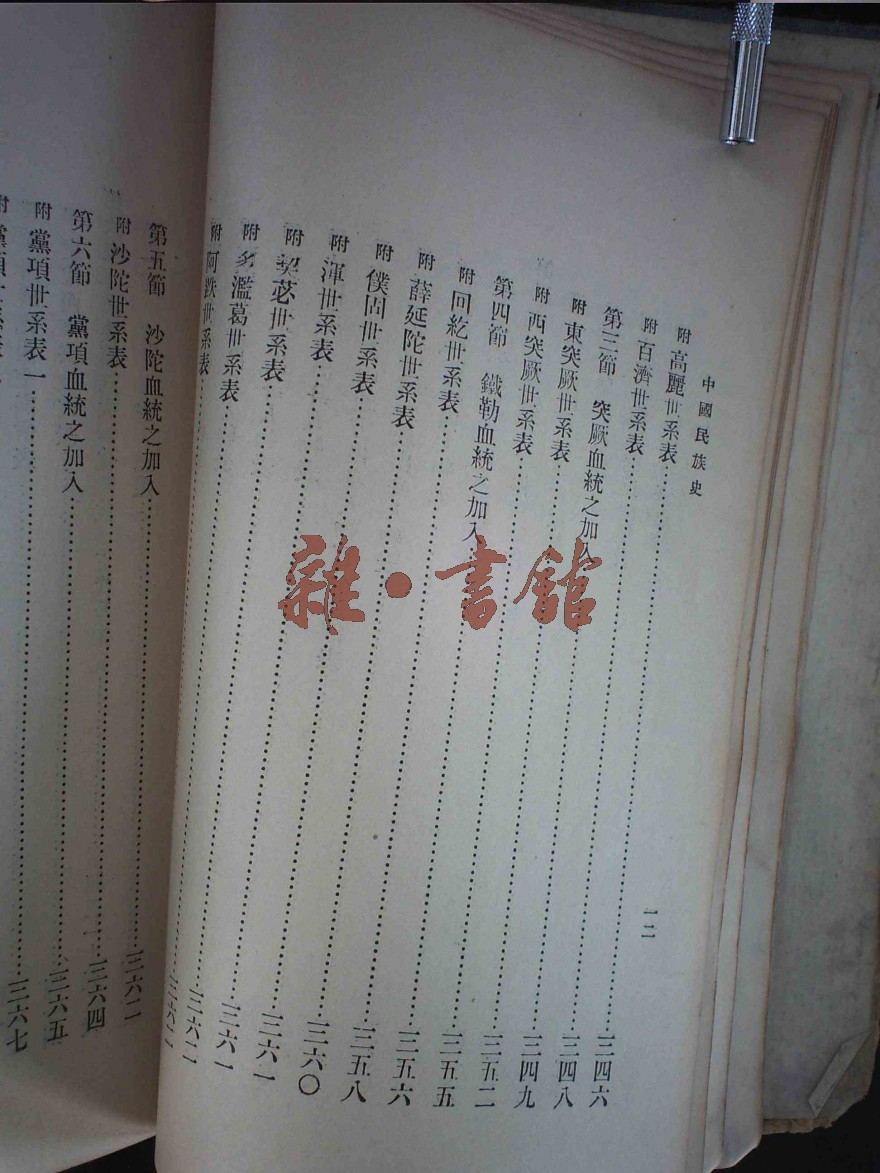 中國民族史
一二
附 高麗世系表
附 百濟世系表……三四六
第三節 突厥血統之加入……三四八
附 東突厥世系表……三四九
附 西突厥世系表……三五二
第四節 鐵勒血統之加入……三五五
附 回紇世系表……三五六
附 薛延陀世系表……三五八
附 僕固世系表……三六〇
附 渾世系表……三六一
附 契苾世系表……三六一
附 多濫葛世系表……三六二
附 阿跌世系表……三六二
第五節 沙陀血統之加入……三六二
附 沙陀世系表……三六四
第六節 黨項血統之加入……三六五
附 黨項世系表一……三六七
附 黨項世系表
雜·書館